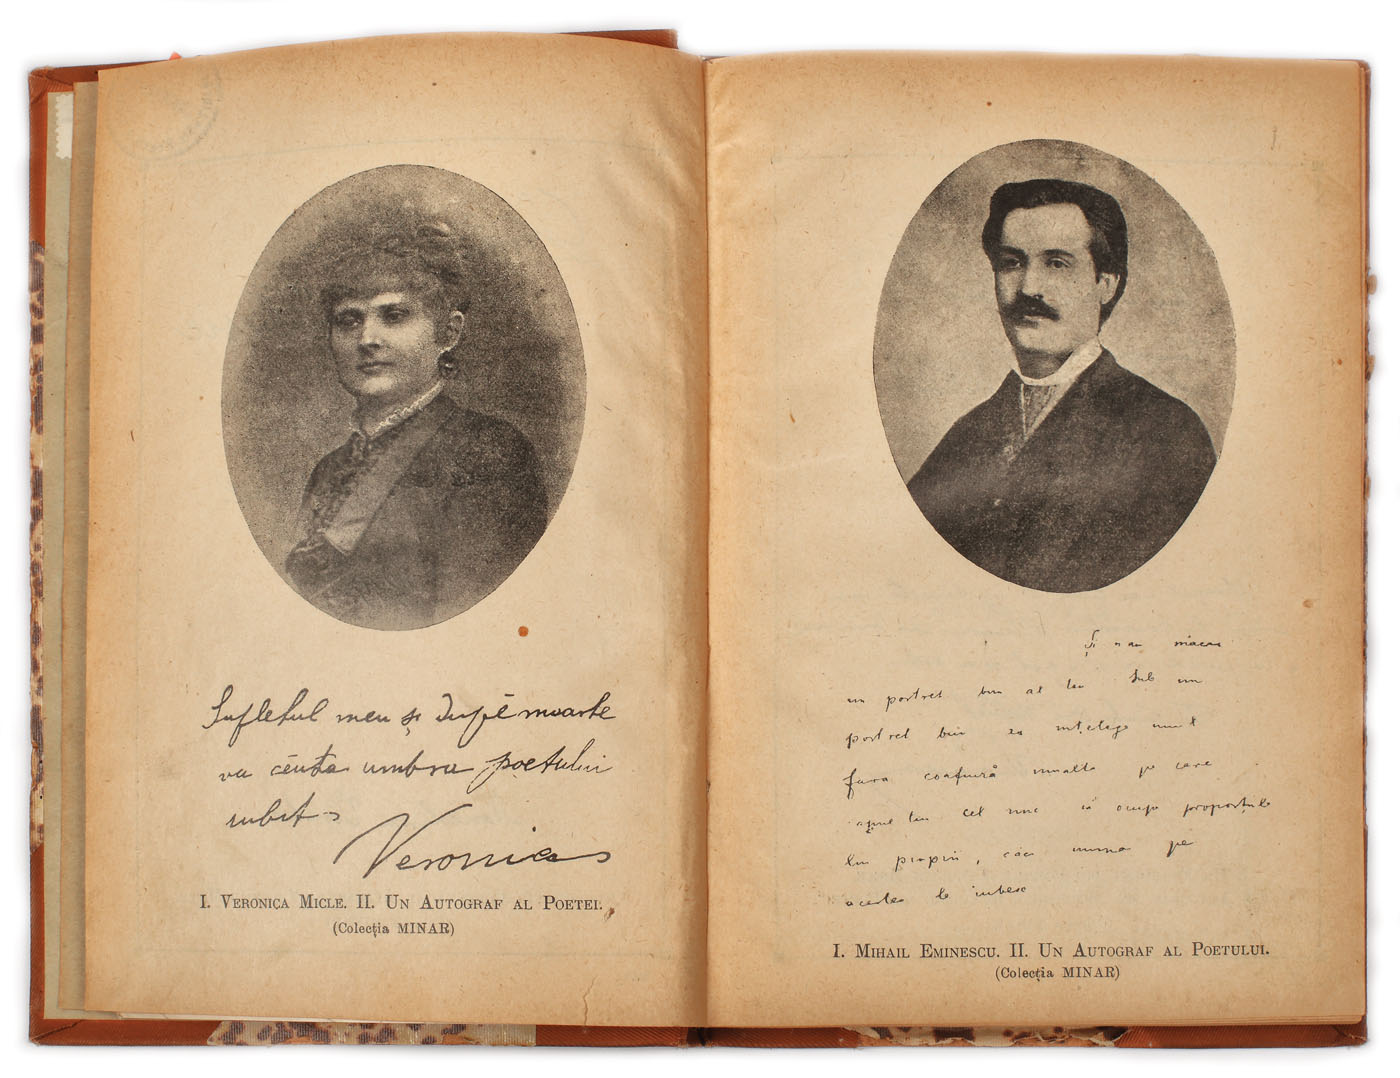 Sufletul meu și după moarte
va căuta umbra poetului
iubit
Veronica
I. Veronica Micle. II. Un Autograf al Poetei.
(Colecția MINAR)
Și n'au măcar
un portret bun al tău Sub un
portret bun se înțelege unul
fără coafură multă pe care
tău cel mic să ocupe proporțiile
lui proprii, căci numai pe
acestea le iubesc
I. Mihail Eminescu. II. Un Autograf al Poetului.
(Colecția MINAR)